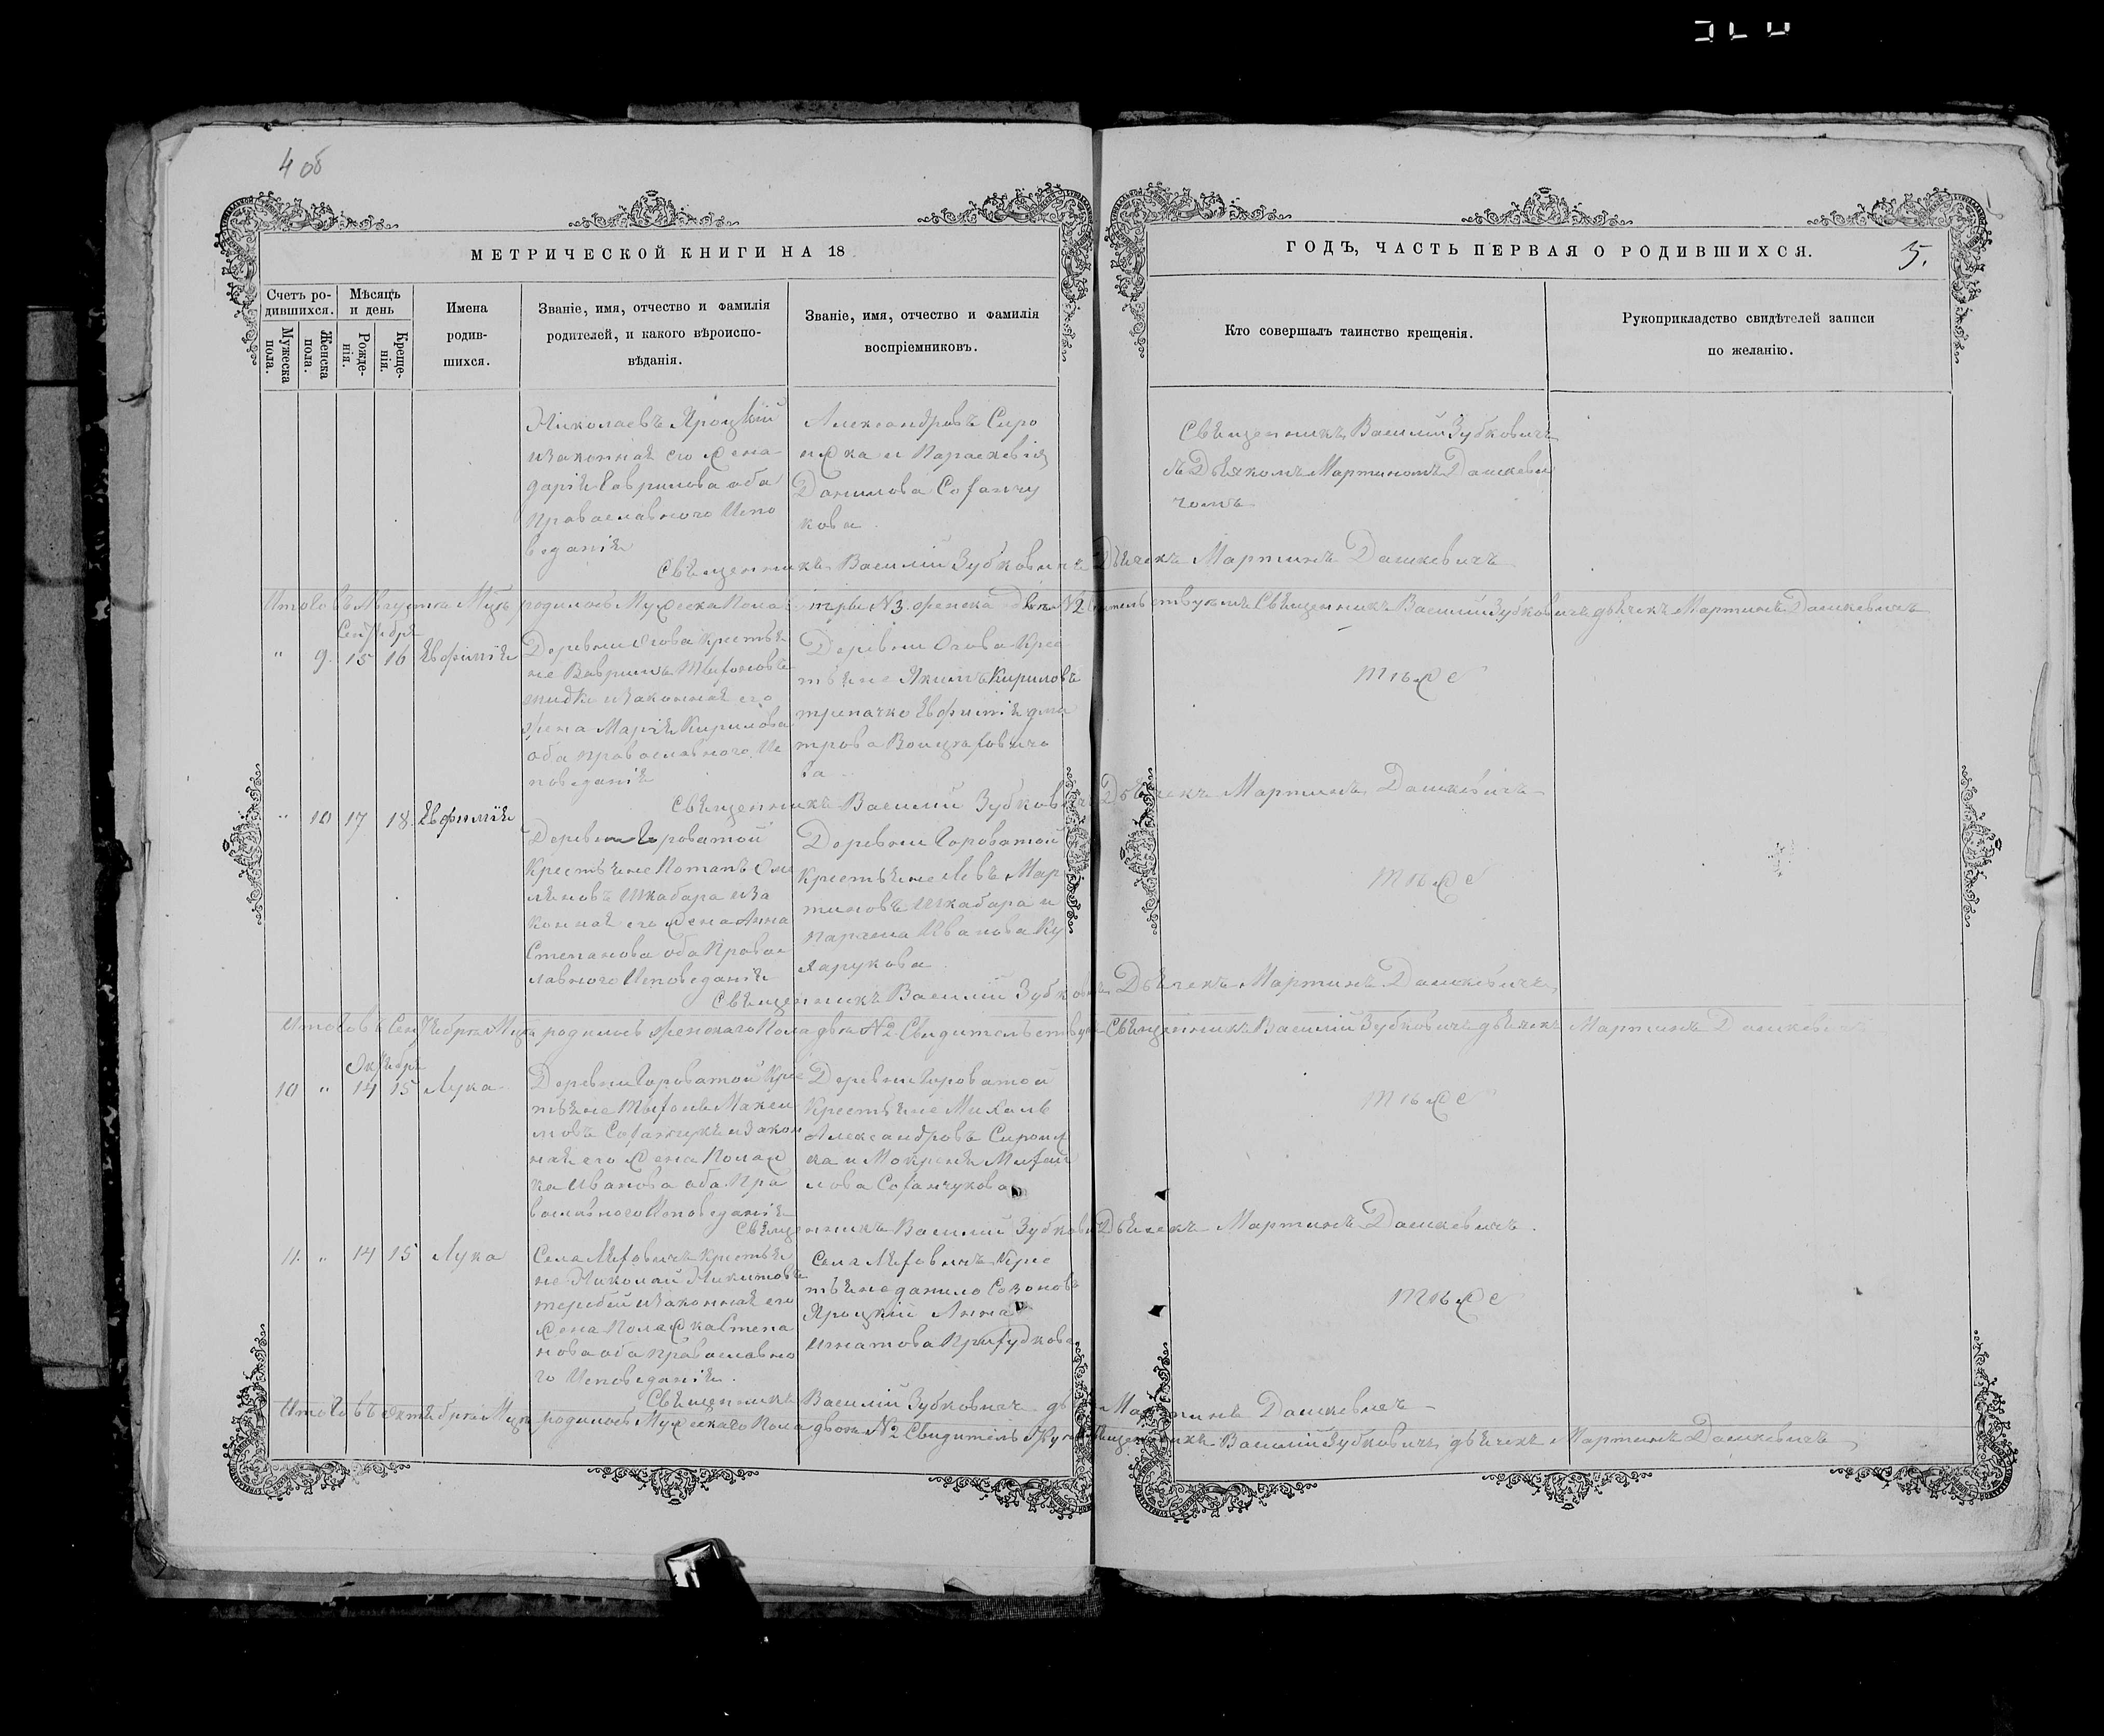 4 об
МЕТРИЧЕСКОЙ КНИГИ НА 18
ГОДЪ, ЧАСТЬ ПЕРВАЯ О РОДИВШИХСЯ.
5.
Счетъ ро-
дившихся.
Мужеска
пола.
Женска
пола.
Мѣсяцъ
и день
Рожде-
нія.
Креще-
нія.
Имена
родив-
шихся.
Званіе, имя, отчество и фамилія
родителей, и какого вѣроиспо-
вѣданія.
Званіе, имя, отчество и фамилія
воспріемниковъ.
Кто совершалъ таинство крещенія.
Рукоприкладство свидѣтелей записи
по желанію.
Николаевъ Яроцкій
изаконная его жена
дарія Гаврилова оба
Православного Испо
веданія
Александровъ Сиро
и Параскевія
Данилова
кова
Священникъ Василий Зубковичъ
съ Дьякомъ Мартиномъ Дашкеви
чомъ
Священникъ Василий Зубковичъ Дьячекъ Мартинъ Дашкевичъ
Итого въ Августа родилось Мужеска Пола три №3. женска две №2 Священникъ Василий Зубковичъ дьячекъ Мартинъ Дашкевичъ
Сентября
" 9. 15 16 Евфимія
Деревни Огова Крестья
не Гаврилъ
изаконная его
жена Марія Кирилова
оба православного Ис
поведанія
Деревни Огова Крес
тьяне Якимъ Кириловъ
Евфимія дми
трова
ва
тожe
Священникъ Василий Зубковичъ Дьячекъ Мартинъ Дашкевичъ
" 10 17 18. Евфимія
Деревни Гороватой
Крестьяне Потапъ Оме
ляновъ Шкабара иза
конная его жена Анна
Степанова оба Правос
лавного Исповеданія
Деревни Гороватой
Крестьяне Левъ Мар
тиновъ Шкабара и
Иванова Ку
харукова
тоже
Священникъ Василий Зубковичъ Дьячекъ Мартинъ Дашкевичъ
Итого въ Сентября родилось женского Пола две №2 Священникъ Василий Зубковичъ дьячекъ Мартинъ Дашкевичъ
Октября
10 " 14 15 Лука
Деревни Гороватой Крес
тьяне Макси
мовъ изакон
ная его жена Полаж
ка Иванова оба Пра
вославного Исповеданія
Деревни Гороватой
Крестьяне Михалъ
Александровъ
и Михаи
лова
тоже
Священникъ Василий Зубковичъ Дьячекъ Мартинъ Дашкевичъ.
11. " 14 15 Лука
Села Ляховичъ Крестья
не Николай Никитовъ
изаконная его
жена Полажка Степа
нова оба православно
го Исповеданія.
Села Ляховичъ Крес
тьяне данило Созоновъ
Яроцкій Анна
Игнатова
тоже
Священникъ Василий Зубковичъ Мартинъ Дашкевичъ
Итого въ Октября родилось Мужескаго Пола двои №2 Священникъ Василий Зубковичъ дьячекъ Мартинъ Дашкевичъ